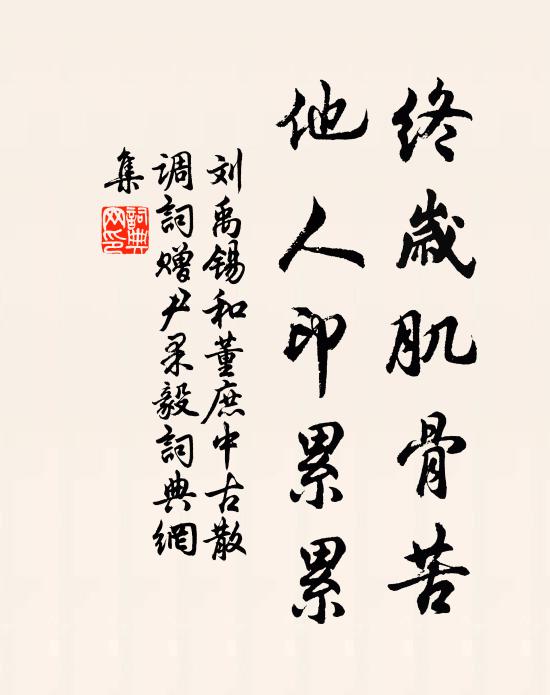 终岁肌骨苦
他人印累累
刘禹锡和董庶中古散
调詞赠尹果毅詞典網
集
詞典網印